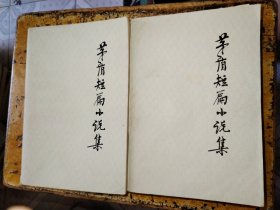 茅盾短篇小说集
茅盾短篇小说集